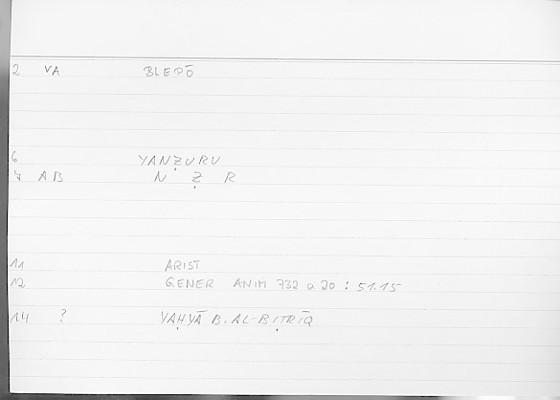 2 VA BLEPŌ
6 YANẒURU
7 AB N Ẓ R
11 ARIST
12 GENER ANIM 732 a 20 : 51.15
14 ? YAḤYĀ B. AL-BIṬRĪQ